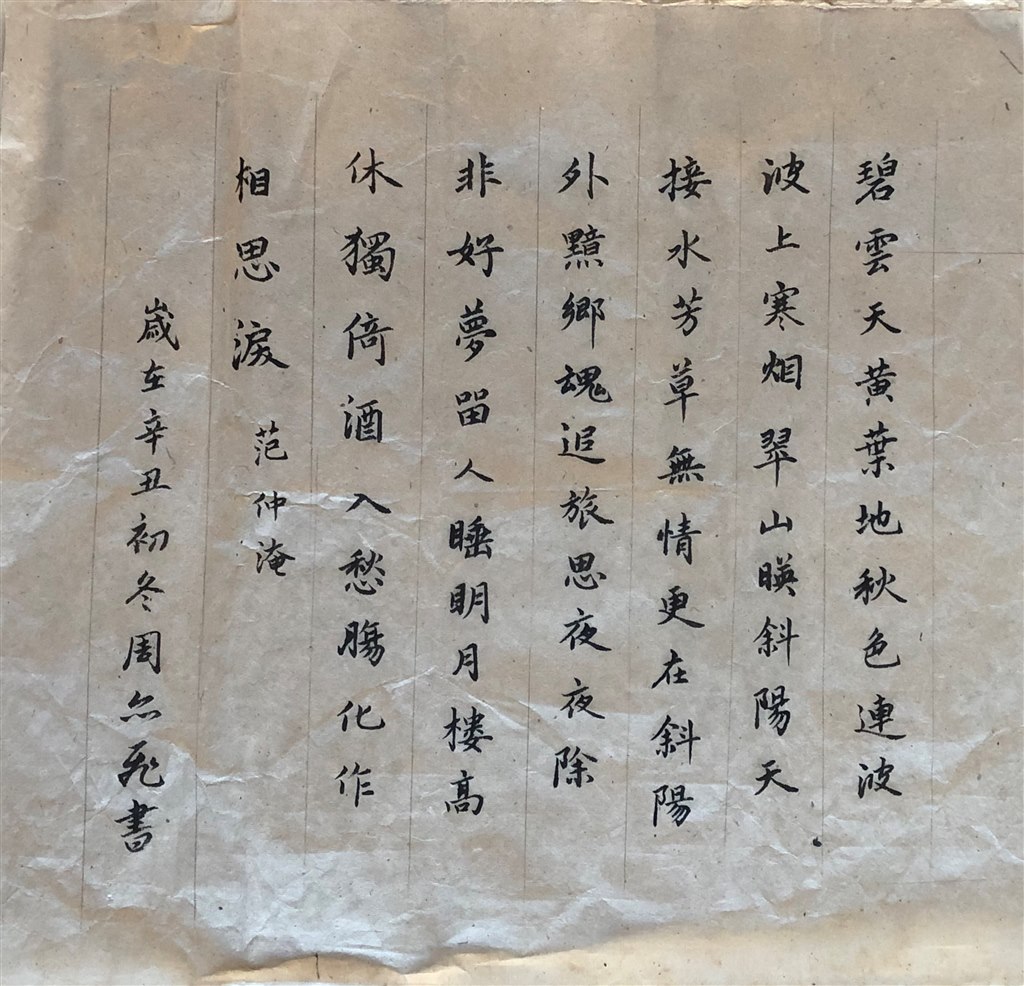 碧雲天黄葉地秋色連波
波上寒烟翠山暎斜陽天
接水芳草無情更在斜陽
外黯鄉魂追旅思夜夜除
非好夢畱人睡明月楼高
休獨倚酒入愁膓化作
相思淚 范仲淹
嵗在辛丑初冬周尒飛書